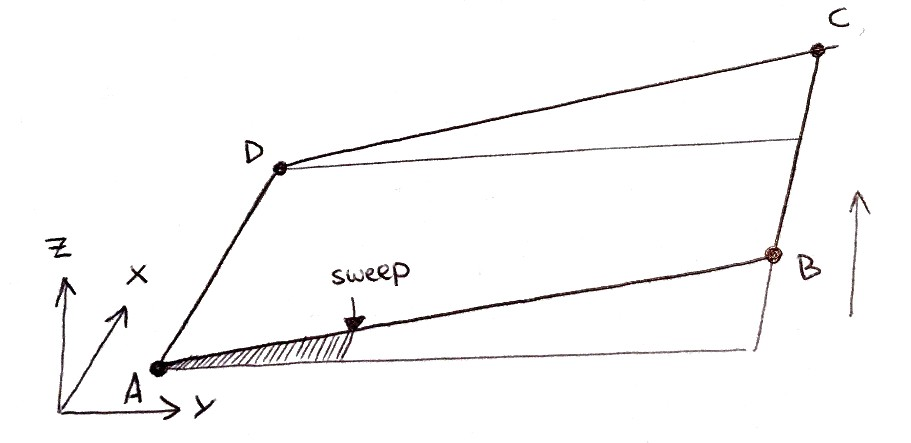 C
D
Z
X
sweep
B
A
Y